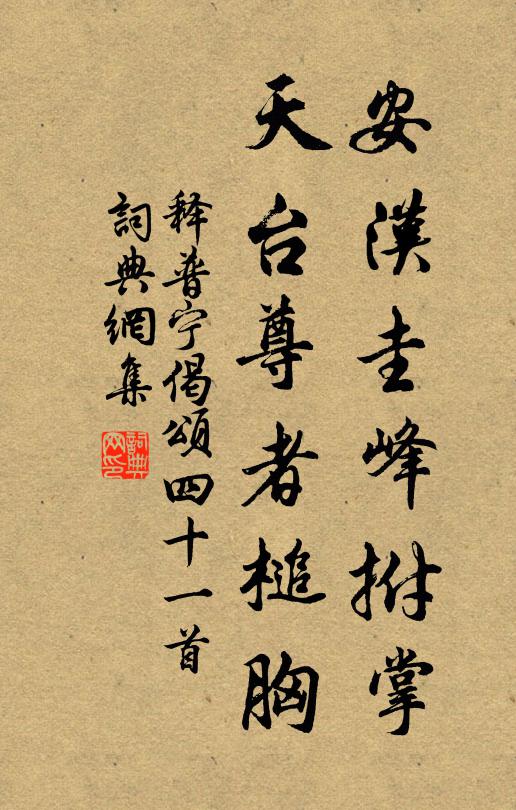 安漢圭峰拊掌
天台尊者槌胸
释普宁偈頌四十一首
詞典網集
詞典網印